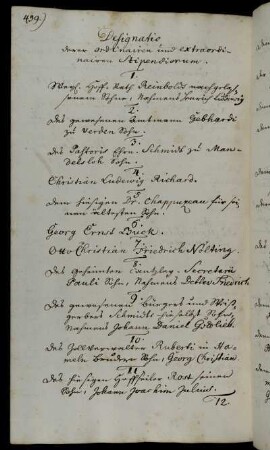 439.
Designatio
derer ordinairen und extraordi-
nairen Stipendiorum.
1.
Weyl. Hoff-Rath Reinbolds nachgelaß
senem Sohne, Nahmens Ludewig
2.
Des gewesenen Amtmann Gebhardi
zu Verden Sohn.
3.
Des Pastoris Ehrn. Schmidt zu Man-
delsloh Sohn.
4.
Christian Ludewig Richard.
5.
dem hiesigen Dr. Chappuzeau für sei
nen ältesten Sohn.
6.
Georg Ernst Buick.
7.
Otto Christian Friedrich Nölting.
8.
Des geheimten Cantzley-Secretarii
Pauli Sohn, Nahmens Detlev Friedrich
9.
Des gewesenen Bürgers und Weiß-
gerbers Schmidts hieselbst Sohn,
Nahmens Johann Daniel Gottlieb.
10.
des Zollverwalter Ruberti in Ha-
meln Bruders Sohn, Georg Christian
11.
des hiesigen Rost seinem
Sohn, Johann Joachim Julius.
12